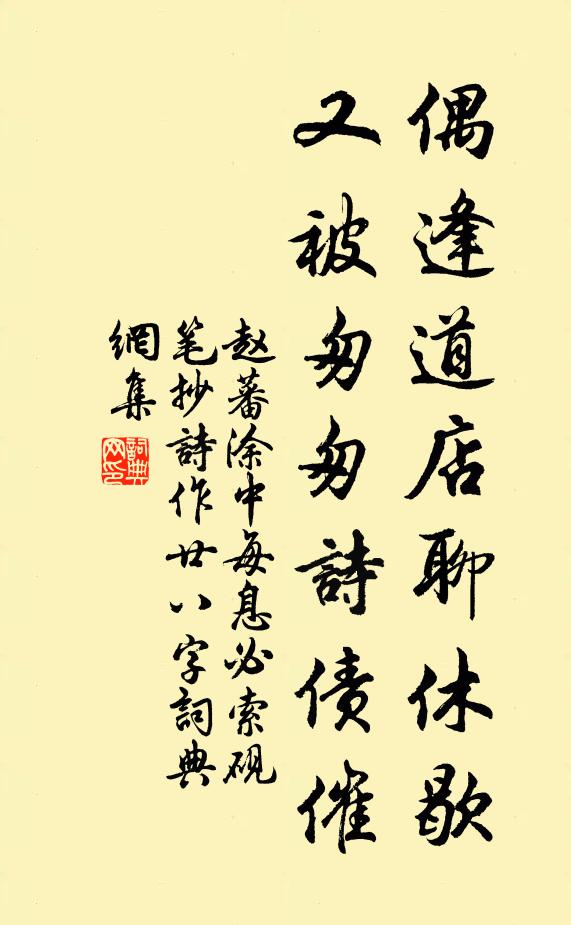 偶逢道店聊休歇
又被匆匆詩債催
赵蕃涂中每息必索砚
笔抄詩作廿八字詞典
網集
詞典
网印